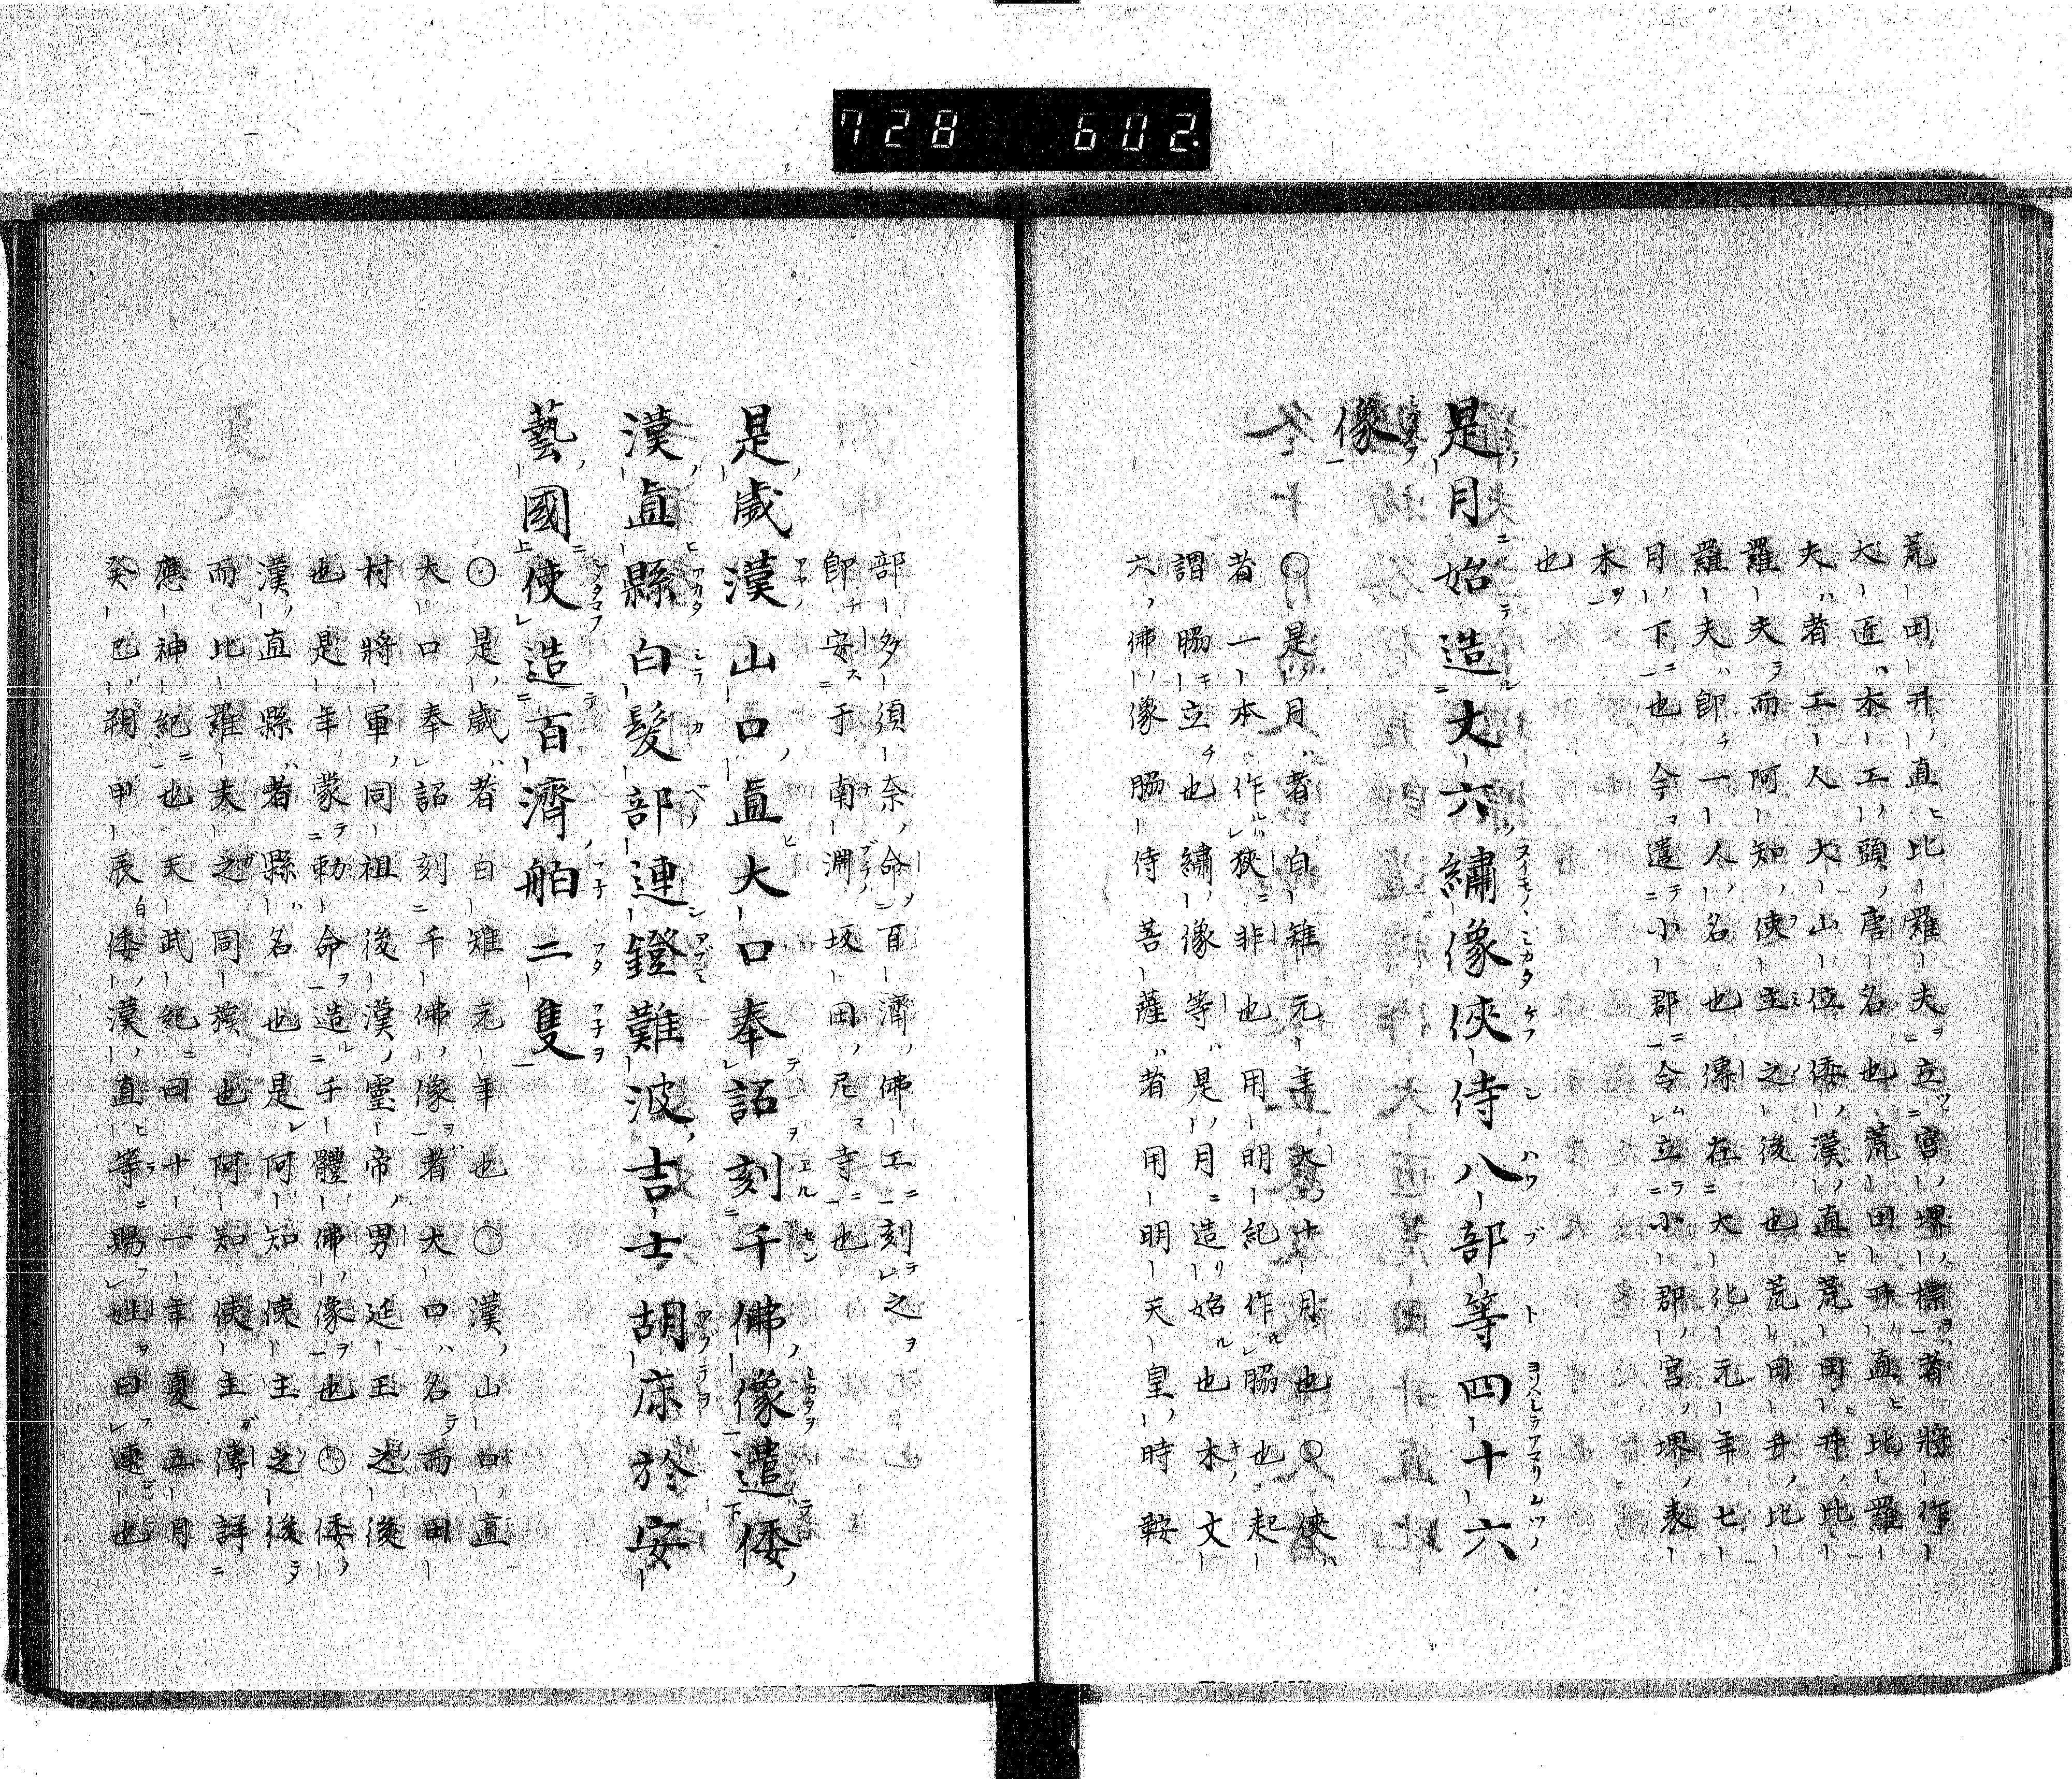 728 602.
荒田井直比羅夫立宮堺標者將作
大匠木工頭唐名也荒田井直比羅
夫者工人大山位倭漢直荒田井比
羅夫而阿知使主之後也荒田井比
羅夫卽一人名也傳在大化元年七
月下也今遣小郡令立小郡宮堺表
木
也
是月始造丈六繡像俠侍八部等四十六
像
○是月者白雉元年大十月也○俠
者一本作狹非也用明紀作脇也起
謂脇立也繡像等是月造始也木文
六佛像脇侍菩薩者用明天皇時鞍
部多須奈命百濟佛工刻之
卽安于南淵坂田尼寺也
是歲漢山口直大口奉詔刻千佛像遣倭
漢直縣白髮部連鐙難波吉士胡床於安
藝國使造百濟舶二隻
○是歲者白雉元年也○漢山口直
大口奉詔刻千佛像者大口名而田
村將軍同祖後漢靈帝男延王之後
也是年蒙勅命造千體佛像也○倭
漢直縣者縣名也是阿知使主之後
而比羅夫之同族也阿知使主傳詳
應神紀也天武紀曰十一年夏五月
癸巳朔甲辰倭漢直等賜姓曰連也